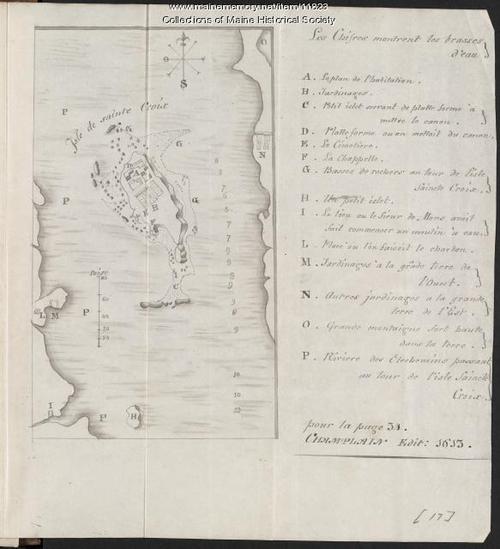 www.mainememory.net/item/11823
Collections of Maine Historical Society
Les Chifres montrent les brasses
d'eau
A. Le plan de l'habitation.
B. Jardinages.
C. Petit islet servant de platte forme à
mettre le canon.
D. Platte forme ou on mettait du canon.
E. Le Cimetiere.
F. La Chappelle.
G. Basses de rochers au tour de l'isle
Saincte Croix.
H. Un petit islet.
I. Le lieu ou le Sieur de Mons avoit
fait commencer un moulin à eau.
L. Place ou l'on faisoit le charbon.
M. Jardinages à la grāde terre de
l'Ouest.
N. Autres jardinages à la grande
terre de l'Est.
O. Grande montaigne fort haute
dans la terre.
P. Riviere des Etechemins passant
au tour de l'isle Saincte
Croix.
pour la page 34.
CHAMPLAIN Edit: 1613.
[17]
Isle de sainte Croix
O
S
P
P
P
P
P
G
G
G
N
A
B
C
L M
I
H
Toise
10
9